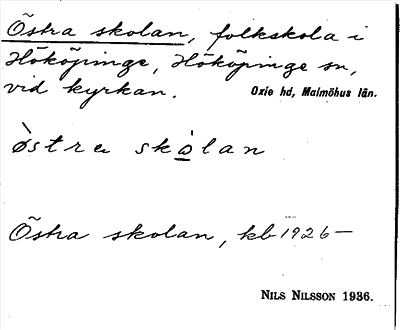 Östra skolan, folkskola i
Hököpinge, Hököpinge sn,
vid kyrkan. Oxie hd, Malmöhus län.
ø̀stra skọlan
Östra skolan, kb 1926–
NILS NILSSON 1936.